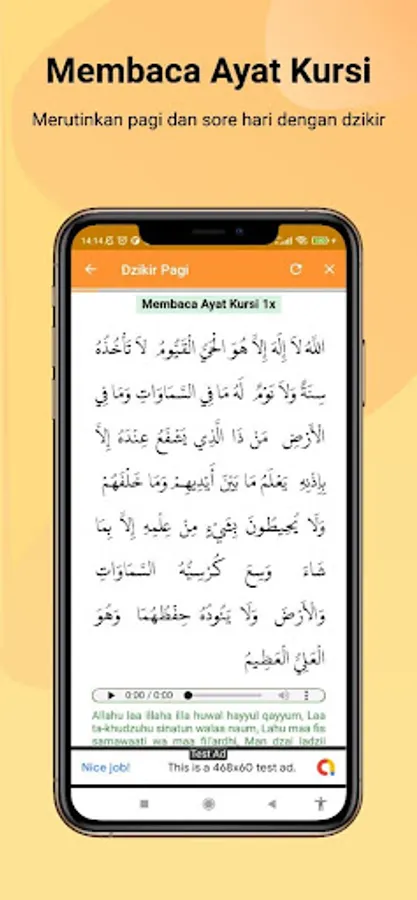 Membaca Ayat Kursi
Merutinkan pagi dan sore hari dengan dzikir
14:14
Dzikir Pagi
Membaca Ayat Kursi 1x
اللَّهُ لاَ إِلَهَ إِلاَّ هُوَ الْحَيُّ الْقَيُّومُ لاَ تَأْخُذُهُ
سِنَةٌ وَلاَ نَوْمٌ لَهُ مَا فِي السَّمَاوَاتِ وَمَا فِي
الْأَرْضِ مَنْ ذَا الَّذِي يَشْفَعُ عِنْدَهُ إِلاَّ
بِإِذْنِهِ يَعْلَمُ مَا بَيْنَ أَيْدِيهِمْ وَمَا خَلْفَهُمْ
وَلَا يُحِيطُونَ بِشَيْءٍ مِنْ عِلْمِهِ إِلاَّ بِمَا
شَاءَ وَسِعَ كُرْسِيُّهُ السَّمَاوَاتِ
وَالْأَرْضَ وَلَا يَئُودُهُ حِفْظُهُمَا وَهُوَ
الْعَلِيُّ الْعَظِيمُ
0:00 / 0:00
Allahu laa illaha illa huwal hayyul qayyum, Laa
ta-khudzuhu sinatun walaa naum, Lahu maa fis
samawaati wa maa fil'ardhi, Man dzal ladzii
Test Ad
Nice job!
This is a 468x60 test ad.